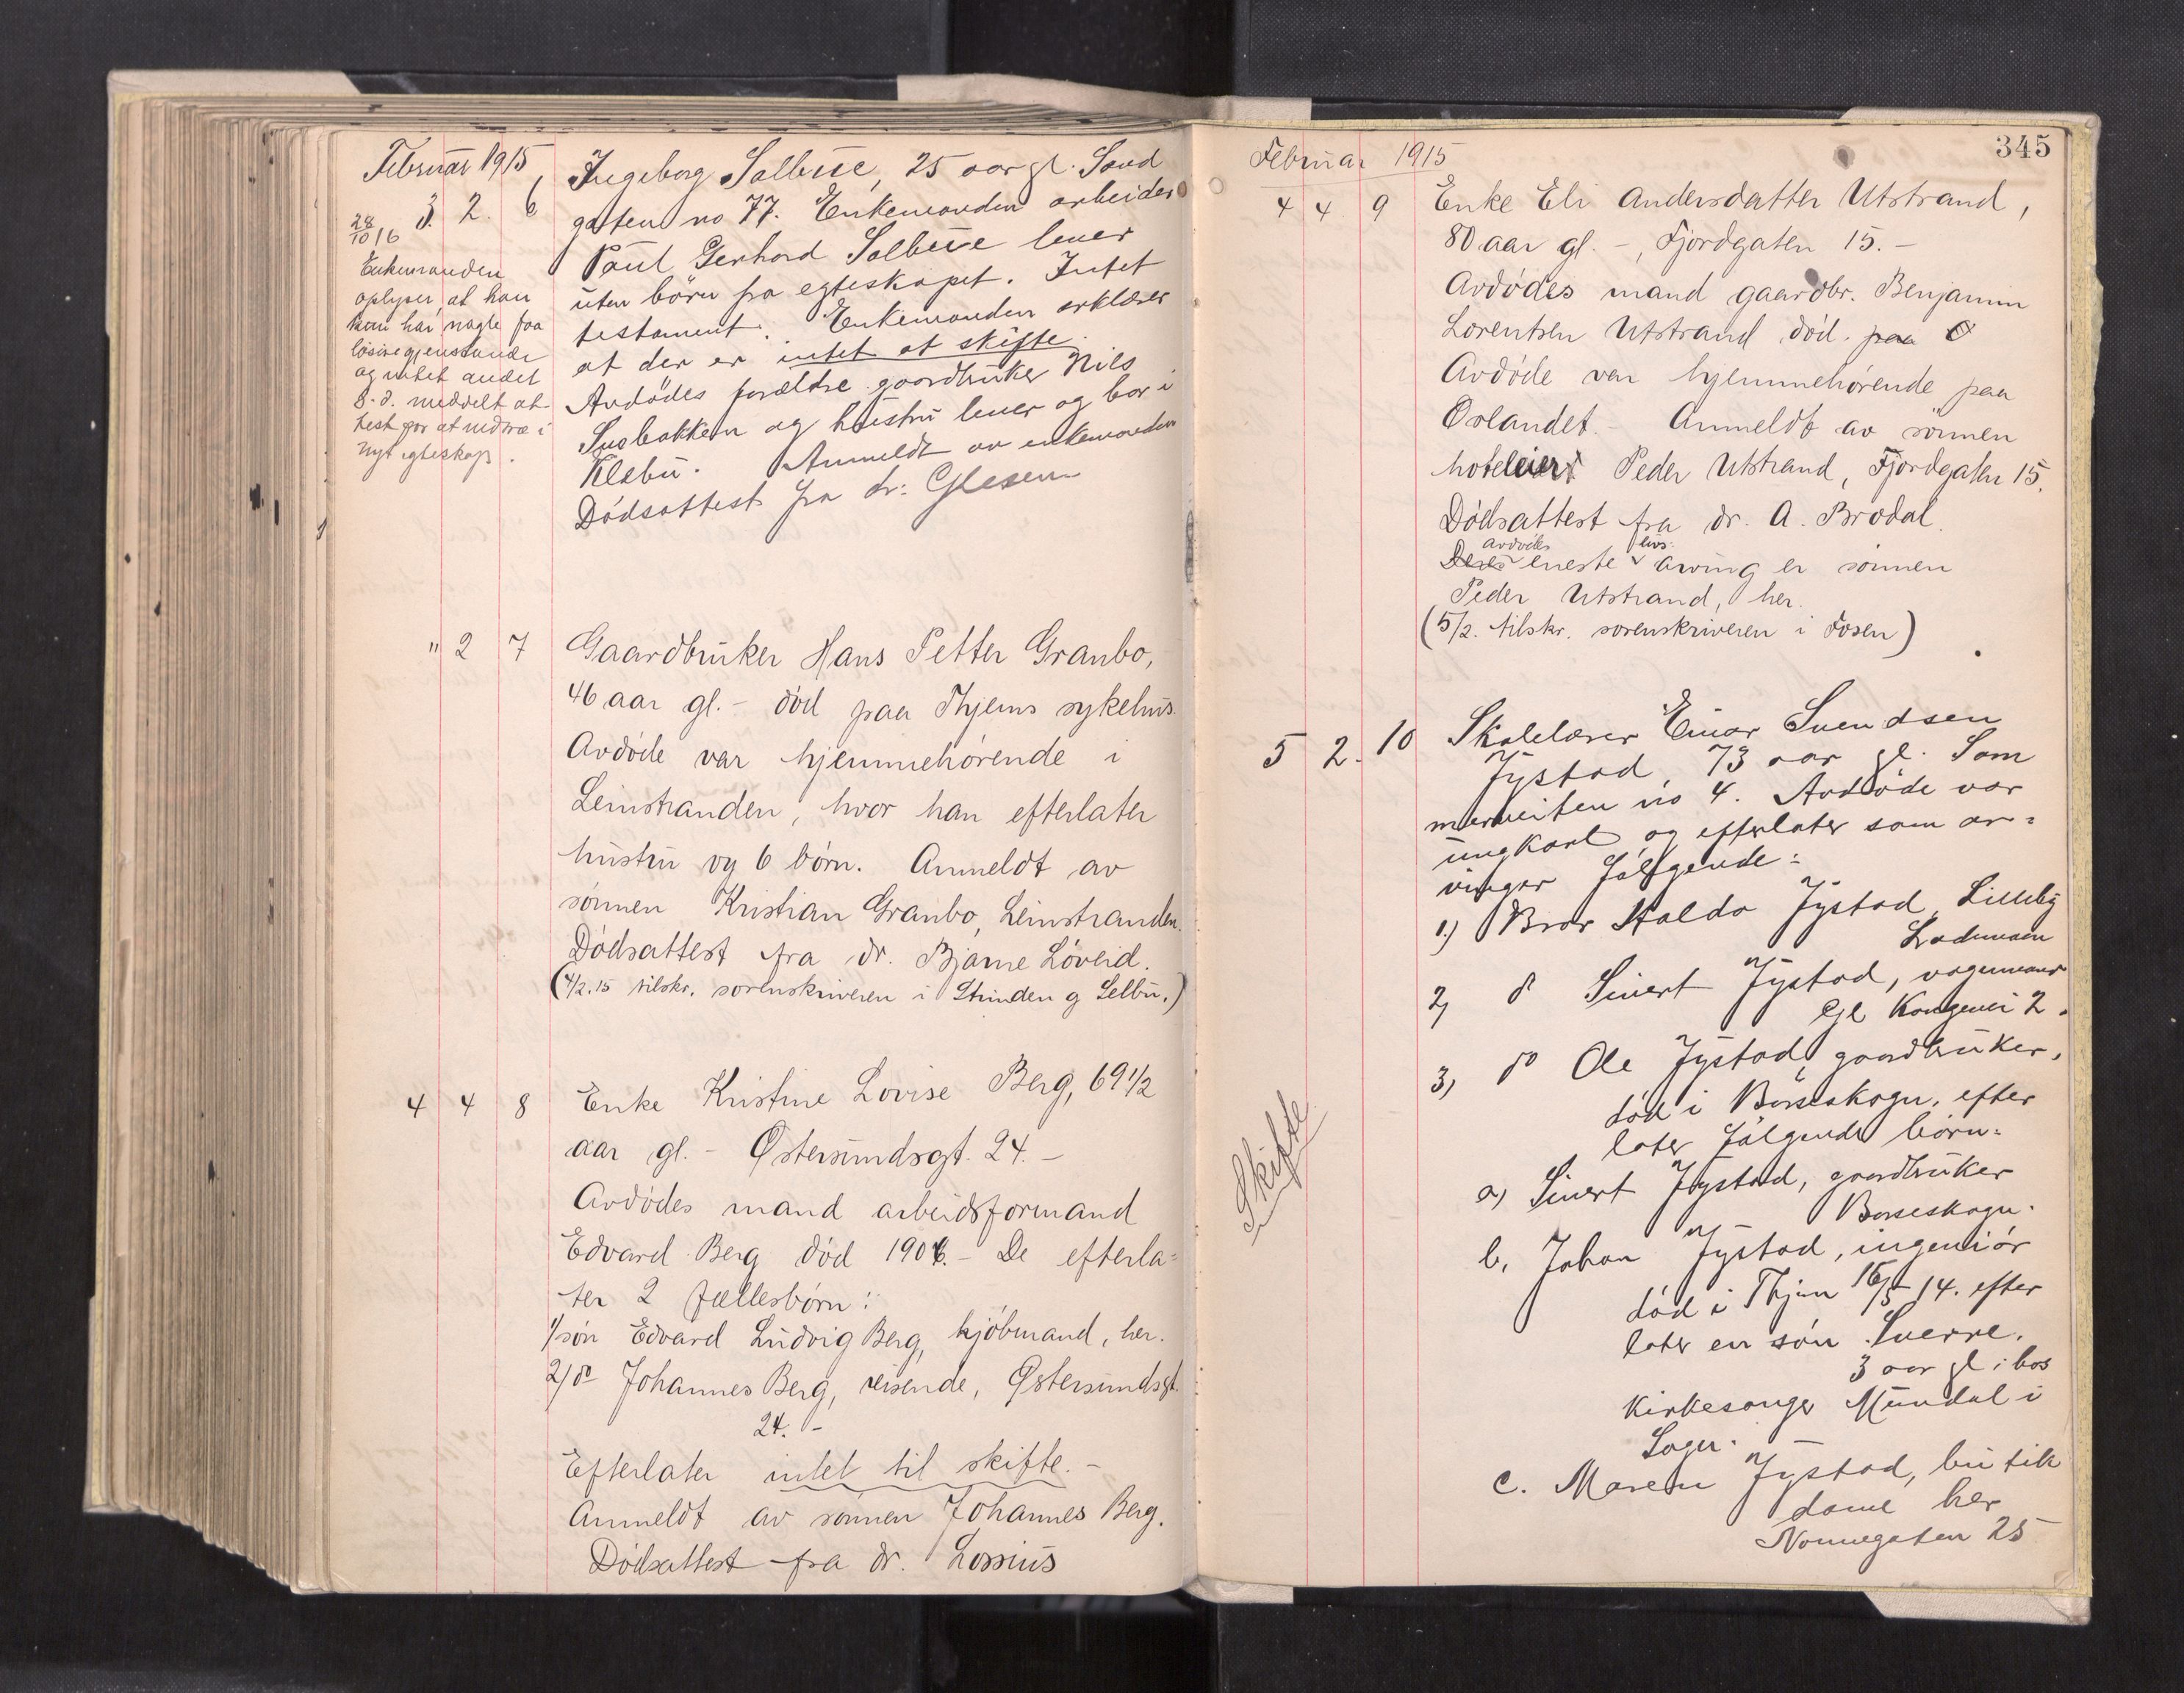 Februar 1915
3. 2. 6
Ingeborg Solbue, 25 aar gl. Sand
gaten no 77. Enkemanden arbeider
Paul Gerhard Solbue lever
uten börn fra egteskapet. Intet
testament. Enkemanden erklærer
at der er intet at skifte
Avdödes forældre gaardbruker Nils
og hustru lever og bor i
Klebu. Anmeldt av enkemanden
Dödsattest fra dr: Glesen
28/10 16
Enkemanden
oplyser, at han
kun har nogle faa
lösöregjenstande
og intet andet
S. d. meddelt at-
test for at indtræ i
nyt egteskap.
" 2 7
Gaardbruker Hans Petter Granbo,
46 aar gl. - död paa Thjems sykehus.
Avdöde var hjemmehörende i
Leinstranden, hvor han efterlater
hustru og 6 börn. Anmeldt av
sönnen Kristian Granbo, Leinstranden.
Dödsattest fra dr. Bjarne Löveid.
(4/2.15 tilskr. sorenskriveren i Strinden g Selbu.)
4 4 8
Enke Kristine Lovise Berg, 69 1/2
aar gl. - Østersundsgt. 24. -
Avdödes mand arbeidsformand
Edvard Berg död 1906. - De efterla=
ter 2 fællesbörn:
1/ sön Edvard Ludvig Berg, kjöbmand, her.
2/ do Johannes Berg, reisende, Østersundsgt.
24. -
Efterlater intet til skifte. -
Anmeldt av sönnen Johannes Berg.
Dödsattest fra dr. Lossius
345
Februar 1915
4 4 9
Enke Eli Andersdatter Utstrand,
80 aar gl. -, Fjordgaten 15. -
Avdödes mand gaardbr. Benjamin
Lorentsen Utstrand död. paa O
Avdöde var hjemmehörende paa
Örlandet. - Anmeldt av sönnen
hoteleier Peder Utstrand, Fjordgaten 15.
Dödsattest fra dr. A. Brodal.
avdödes livs-
eneste arving er sönnen
Peder Utstrand, her.
(5/2. tilskr. sorenskriveren i Fosen)
5 2. 10
Skolelærer Einar Svendsen
Jystad, 73 aar gl. Som
merveiten no 4. Avdöde var
ungkarl og efterlater som ar=
vinger følgende:
1.) Bror Haldo Jystad, Lilleby
Lademoen
2, do Sivert Jystad, vognmand
Gl Kongevei 2.
3, do Ole Jystad, gaardbruker,
död i Börseskogn, efter
later følgende börn:
a, Sivert Jystad, gaardbruker
Börseskogn.
b, Johan Jystad, ingeniör
död i Thjem 16/5 14. efter
later en sön Sverre.
3 aar gl. hos
Kirkesanger Mundal i
c. Maren Jystad, butik
dame her
Nonnegaten 25
Skifte